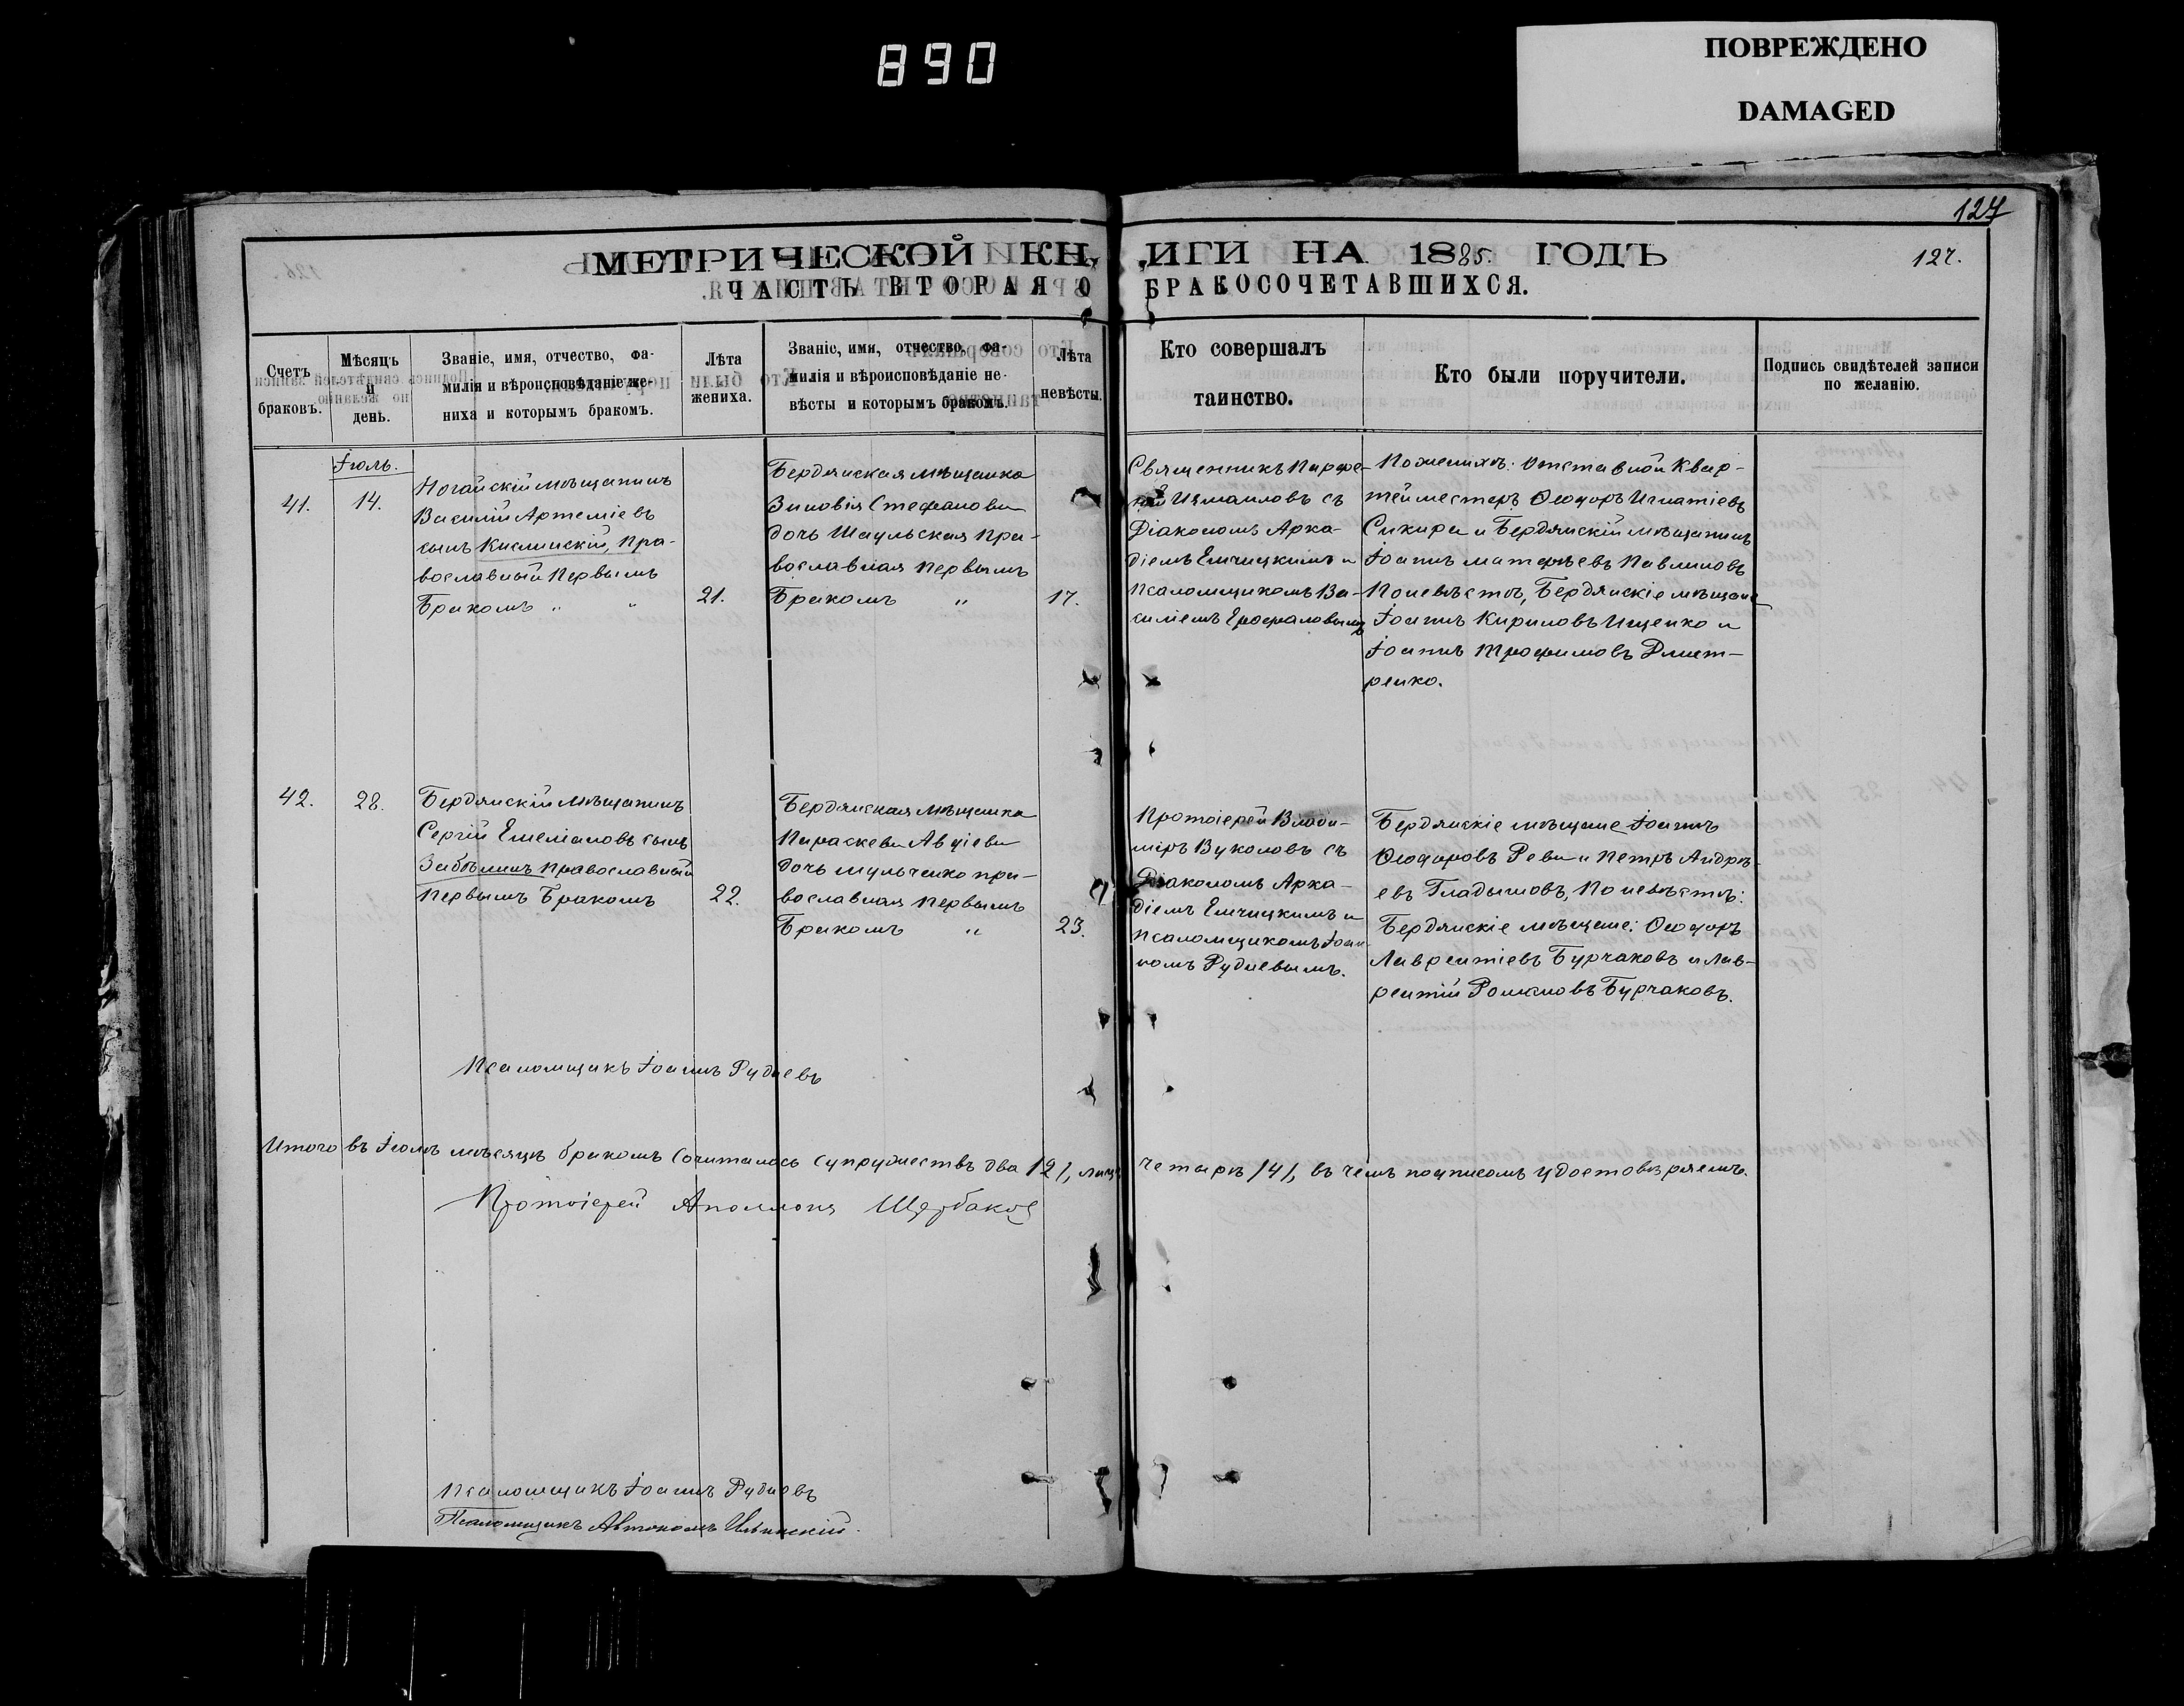 890
ПОВРЕЖДЕНО
DAMAGED
127
МЕТРИЧЕСКОЙ КНИГИ НА 1885. ГОДЪ
127.
ЧАСТЬ ВТОРАЯ О БРАКОСОЧЕТАВШИХСЯ.
Счетъ
браковъ.
Мѣсяцъ
и
день.
Званіе, имя, отчество, фа-
милія и вѣроисповѣданіе же-
ниха и которымъ бракомъ.
Лѣта
жениха.
Званіе, имя, отчество, фа-
милія и вѣроисповѣданіе не-
вѣсты и которымъ бракомъ.
Лѣта
невѣсты.
Кто совершалъ
таинство.
Кто были поручители.
Подпись свидѣтелей записи
по желанію.
41.
Іюль.
14.
Ногайскій мѣщанинъ
Василій Артеміевъ
сынъ Кислинскій, Пра-
вославный Первымъ
Бракомъ " "
21.
Бердянская мѣщанка
Зиновія Стефанова
дочь Шаульская Пра-
вославная Первымъ
Бракомъ "
17.
Священникъ Парфе-
ній Измаиловъ съ
Діакономъ Арка-
діемъ Емчицкимъ и
Псаломщикомъ Ва-
силіемъ
По женихѣ: Отставной Квар-
тейместеръ Ѳеодоръ Игнатіевъ
Сикира и Бердянскій мѣщанинъ
Іоаннъ Матѳѣевъ Павлиновъ
По невѣстѣ, Бердянскіе мѣщане
Іоаннъ Кириловъ Ищенко и
Іоаннъ Трофимовъ Дмит-
ренко.
42.
28.
Бердянскій мѣщанинъ
Сергій Емеліановъ сынъ
Забѣлинъ Православный
Первымъ Бракомъ
22.
Бердянская мѣщанка
Параскева Авдіева
дочь Шульченко пра-
вославная Первымъ
Бракомъ "
23.
Протоіерей Влади-
міръ Вуколовъ съ
Діакономъ Арка-
діемъ Емчицкимъ и
Псаломщикомъ Іоан-
номъ Рудневымъ.
Бердянскіе мѣщане Іоаннъ
Ѳеодоровъ Рева и Петръ Андрѣ-
евъ Гладышовъ, По невѣстѣ:
Бердянскіе мѣщане: Ѳеодоръ
Лаврентіевъ Бурчаковъ и Лав-
рентій Романовъ Бурчаковъ.
Псаломщикъ Іоаннъ Рудневъ
Итого въ Іюлѣ мѣсяцѣ бракомъ сочиталось супружествъ два /2/, лицъ четыре /4/, въ чемъ подписомъ удостовѣряемъ.
Протоіерей Аполлонъ Щербаковъ
Псаломщикъ Іоаннъ Рудневъ
Псаломщикъ Автономъ Ильинскій.